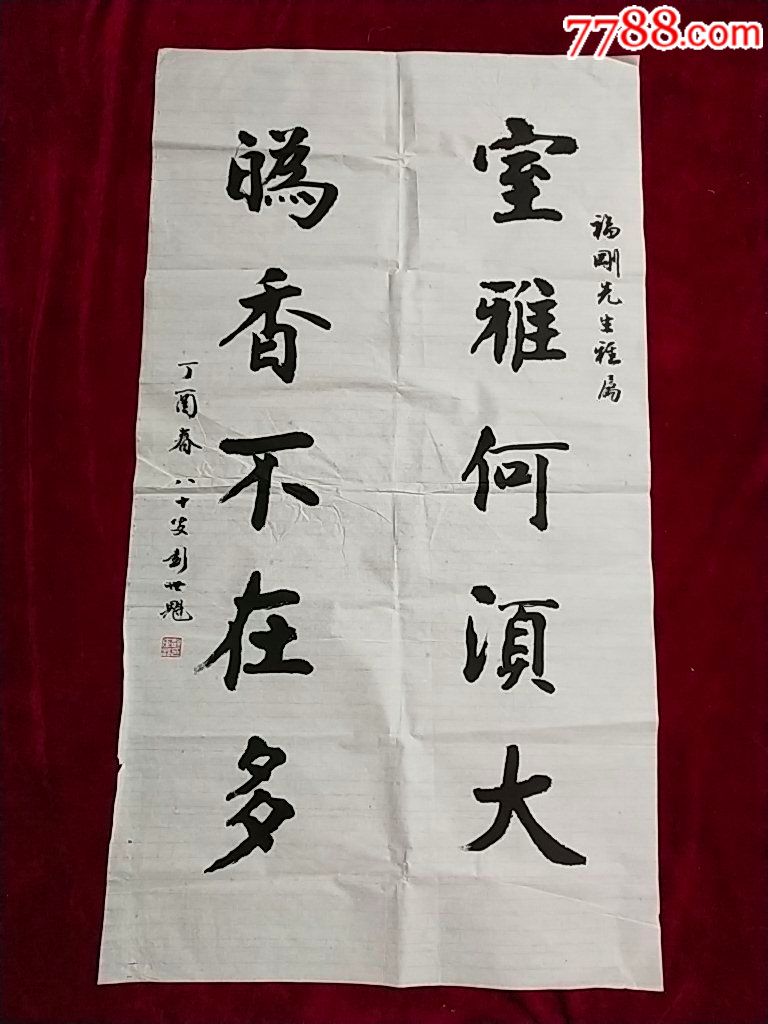 7788.com
福剛先生雅属
室雅何湏大
香不在多
丁酉春 八十叟彭世魁